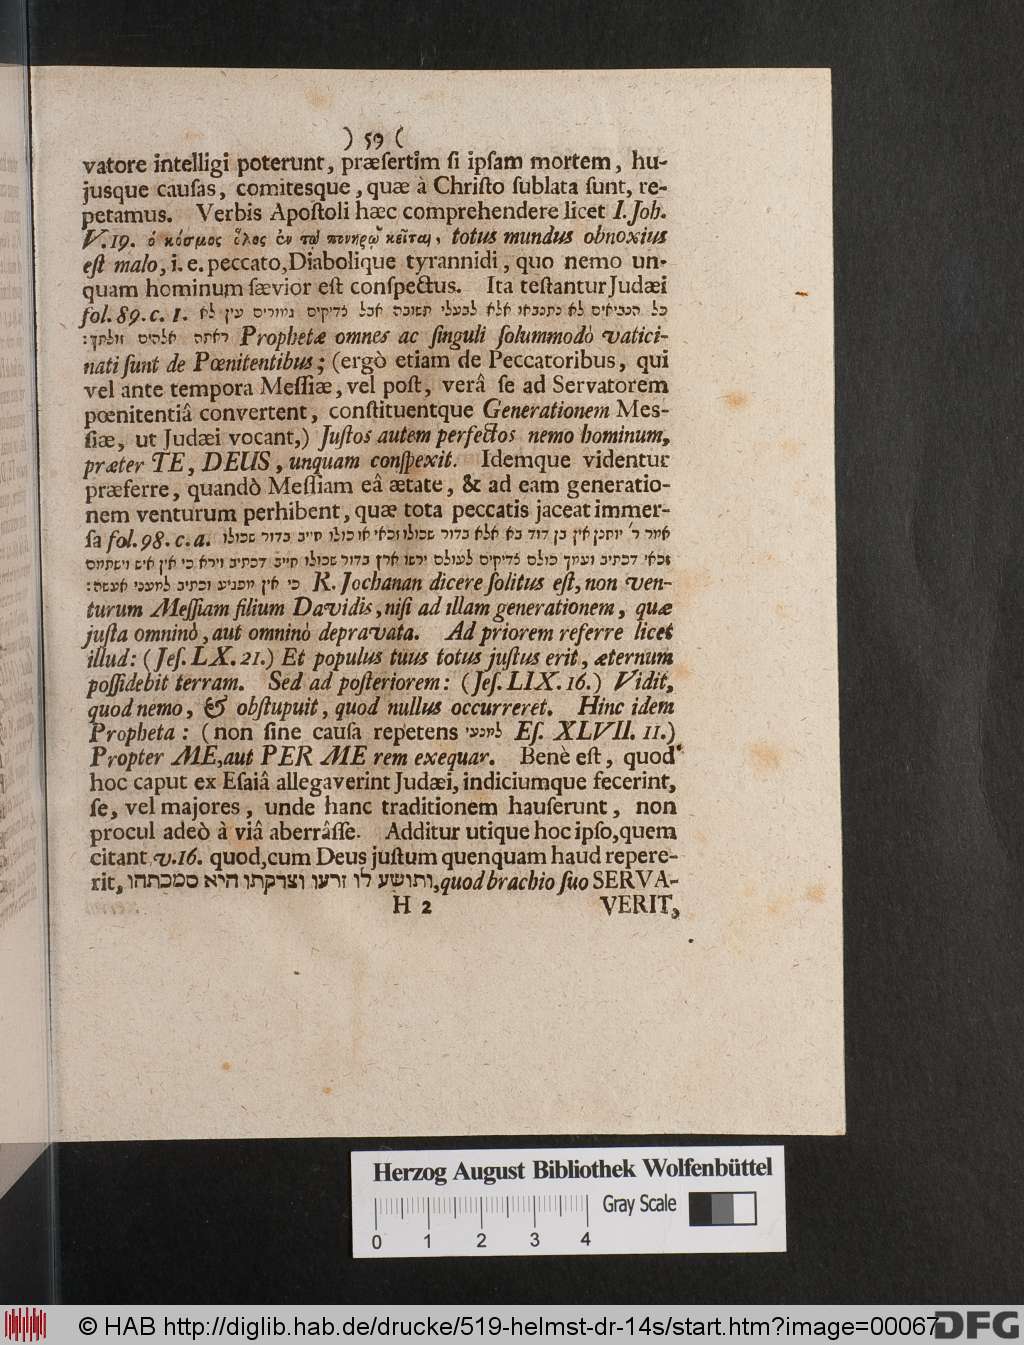 ) 59 (
vatore intelligi poterunt, præſertim ſi ipſam mortem, hu-
jusque cauſas, comitesque, quæ à Chriſto ſublata ſunt, re-
petamus. Verbis Apoſtoli hæc comprehendere licet I. Joh.
V. 19. ὁ κόσμος ὅλος ἐν τῷ πονηρῷ κεῖται, totus mundus obnoxius
eſt malo, i. e. peccato, Diabolique tyrannidi, quo nemo un-
quam hominum ſævior eſt conſpectus. Ita teſtantur Judæi
fol. 89. c. 1. כל הנביאים לא נתנבאו אלא לבעלי תשובה אבל צדיקים גמורים עין לא
ראתה אלהים זולתך: Prophetæ omnes ac ſinguli ſolummodò vatici-
nati ſunt de Pœnitentibus; (ergò etiam de Peccatoribus, qui
vel ante tempora Meſſiæ, vel poſt, verâ ſe ad Servatorem
pœnitentiâ convertent, conſtituentque Generationem Meſ-
ſiæ, ut Judæi vocant,) Juſtos autem perfectos nemo hominum,
præter TE, DEUS, unquam conſpexit. Idemque videntur
præferre, quandò Meſſiam eâ ætate, & ad eam generatio-
nem venturum perhibent, quæ tota peccatis jaceat immer-
ſa fol. 98. c. a. אמר ר' יוחנן אין בן דוד בא אלא בדור שכולו זכאי או כולו חייב בדור שכולו
זכאי דכתיב ועמך כולם צדיקים לעולם ירשו ארץ בדור שכולו חייב דכתיב וירא כי אין איש וישתומם
כי אין מפגיע וכתיב למעני אעשה: R. Jochanan dicere ſolitus eſt, non ven-
turum Meſſiam filium Davidis, niſi ad illam generationem, quæ
juſta omninò, aut omninò depravata. Ad priorem referre licet
illud: (Jeſ. LX. 21.) Et populus tuus totus juſtus erit, æternum
poſſidebit terram. Sed ad poſteriorem: (Jeſ. LIX. 16.) Vidit,
quod nemo, & obſtupuit, quod nullus occurreret. Hinc idem
Propheta: (non ſine cauſa repetens למעני Eſ. XLVII. 11.)
Propter ME, aut PER ME rem exequar. Benè eſt, quod
hoc caput ex Eſaiâ allegaverint Judæi, indiciumque fecerint,
ſe, vel majores, unde hanc traditionem hauſerunt, non
procul adeò à viâ aberrâſſe. Additur utique hoc ipſo, quem
citant v. 16. quod, cum Deus juſtum quenquam haud repere-
rit, ותושע לו זרעו וצדקתו היא סמכתהו, quod brachio ſuo SERVA-
H 2 VERIT,
Herzog August Bibliothek Wolfenbüttel
Gray Scale
0 1 2 3 4
© HAB http://diglib.hab.de/drucke/519-helmst-dr-14s/start.htm?image=00067
DFG